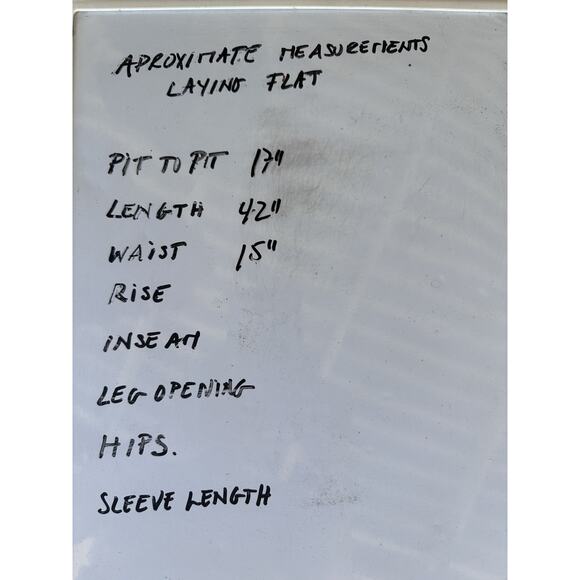 APROXIMATE MEASUREMENTS
LAYING FLAT
PIT TO PIT 17"
LENGTH 42"
WAIST 15"
RISE
INSEAM
LEG OPENING
HIPS.
SLEEVE LENGTH